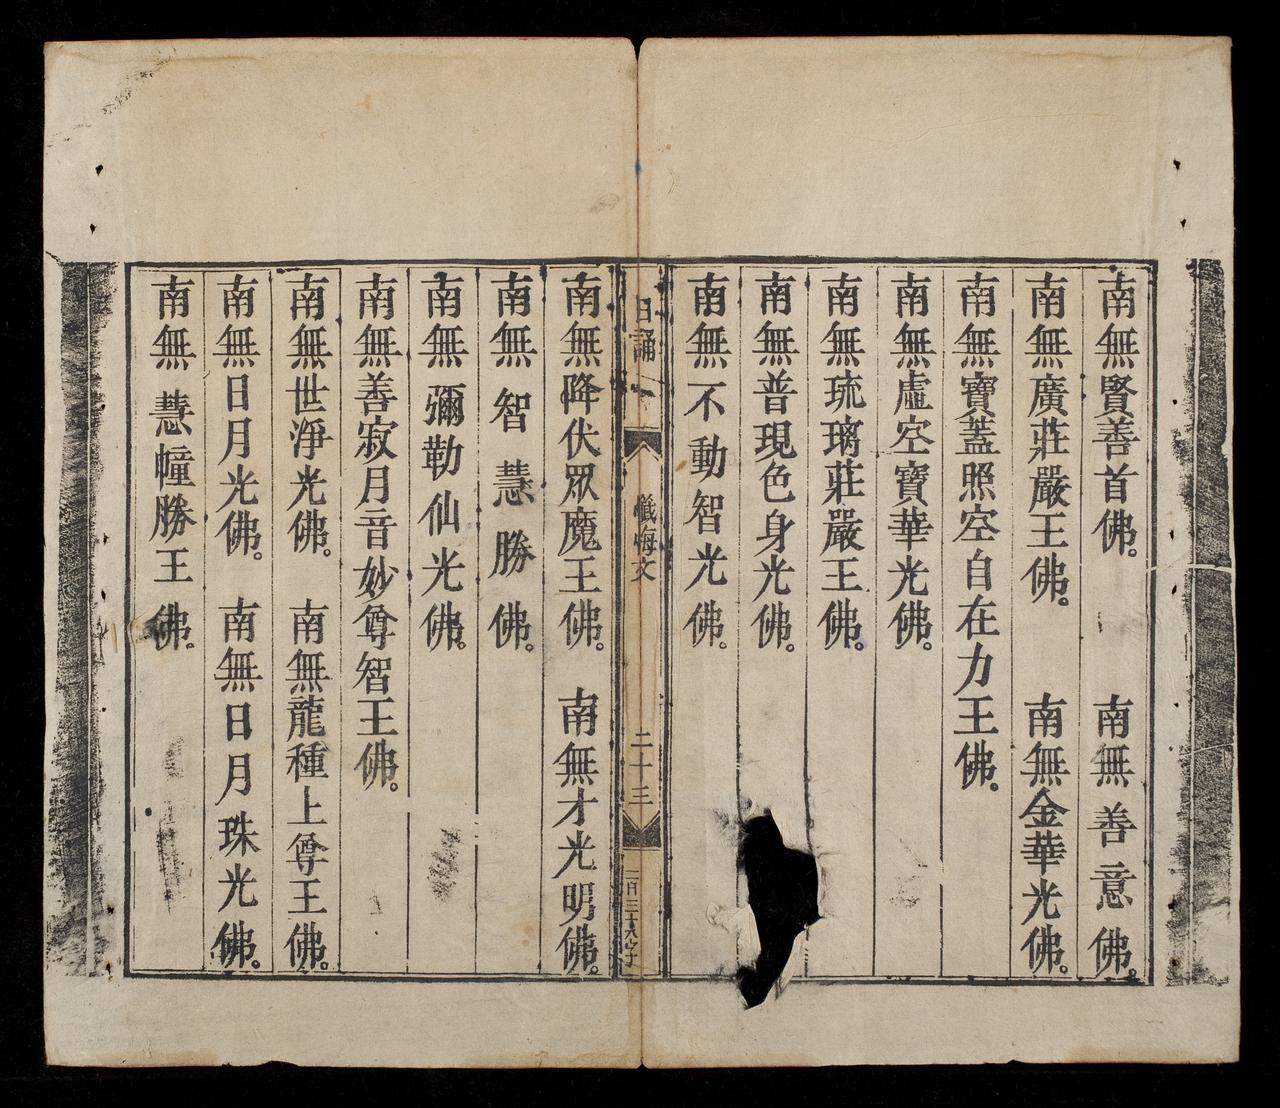 南無賢善首佛。 南無善意佛。
南無廣莊嚴王佛。 南無金華光佛。
南無寶蓋照空自在力王佛。
南無虛空寶華光佛。
南無琉璃莊嚴王佛。
南無普現色身光佛。
南無不動智光佛。
日誦一 懺悔文 二十三 二百三十八字
南無降伏眾魔王佛。 南無才光明佛。
南無智慧勝佛。
南無彌勒仙光佛。
南無善寂月音妙尊智王佛。
南無世淨光佛。 南無龍種上尊王佛。
南無日月光佛。 南無日月珠光佛。
南無慧幢勝王佛。